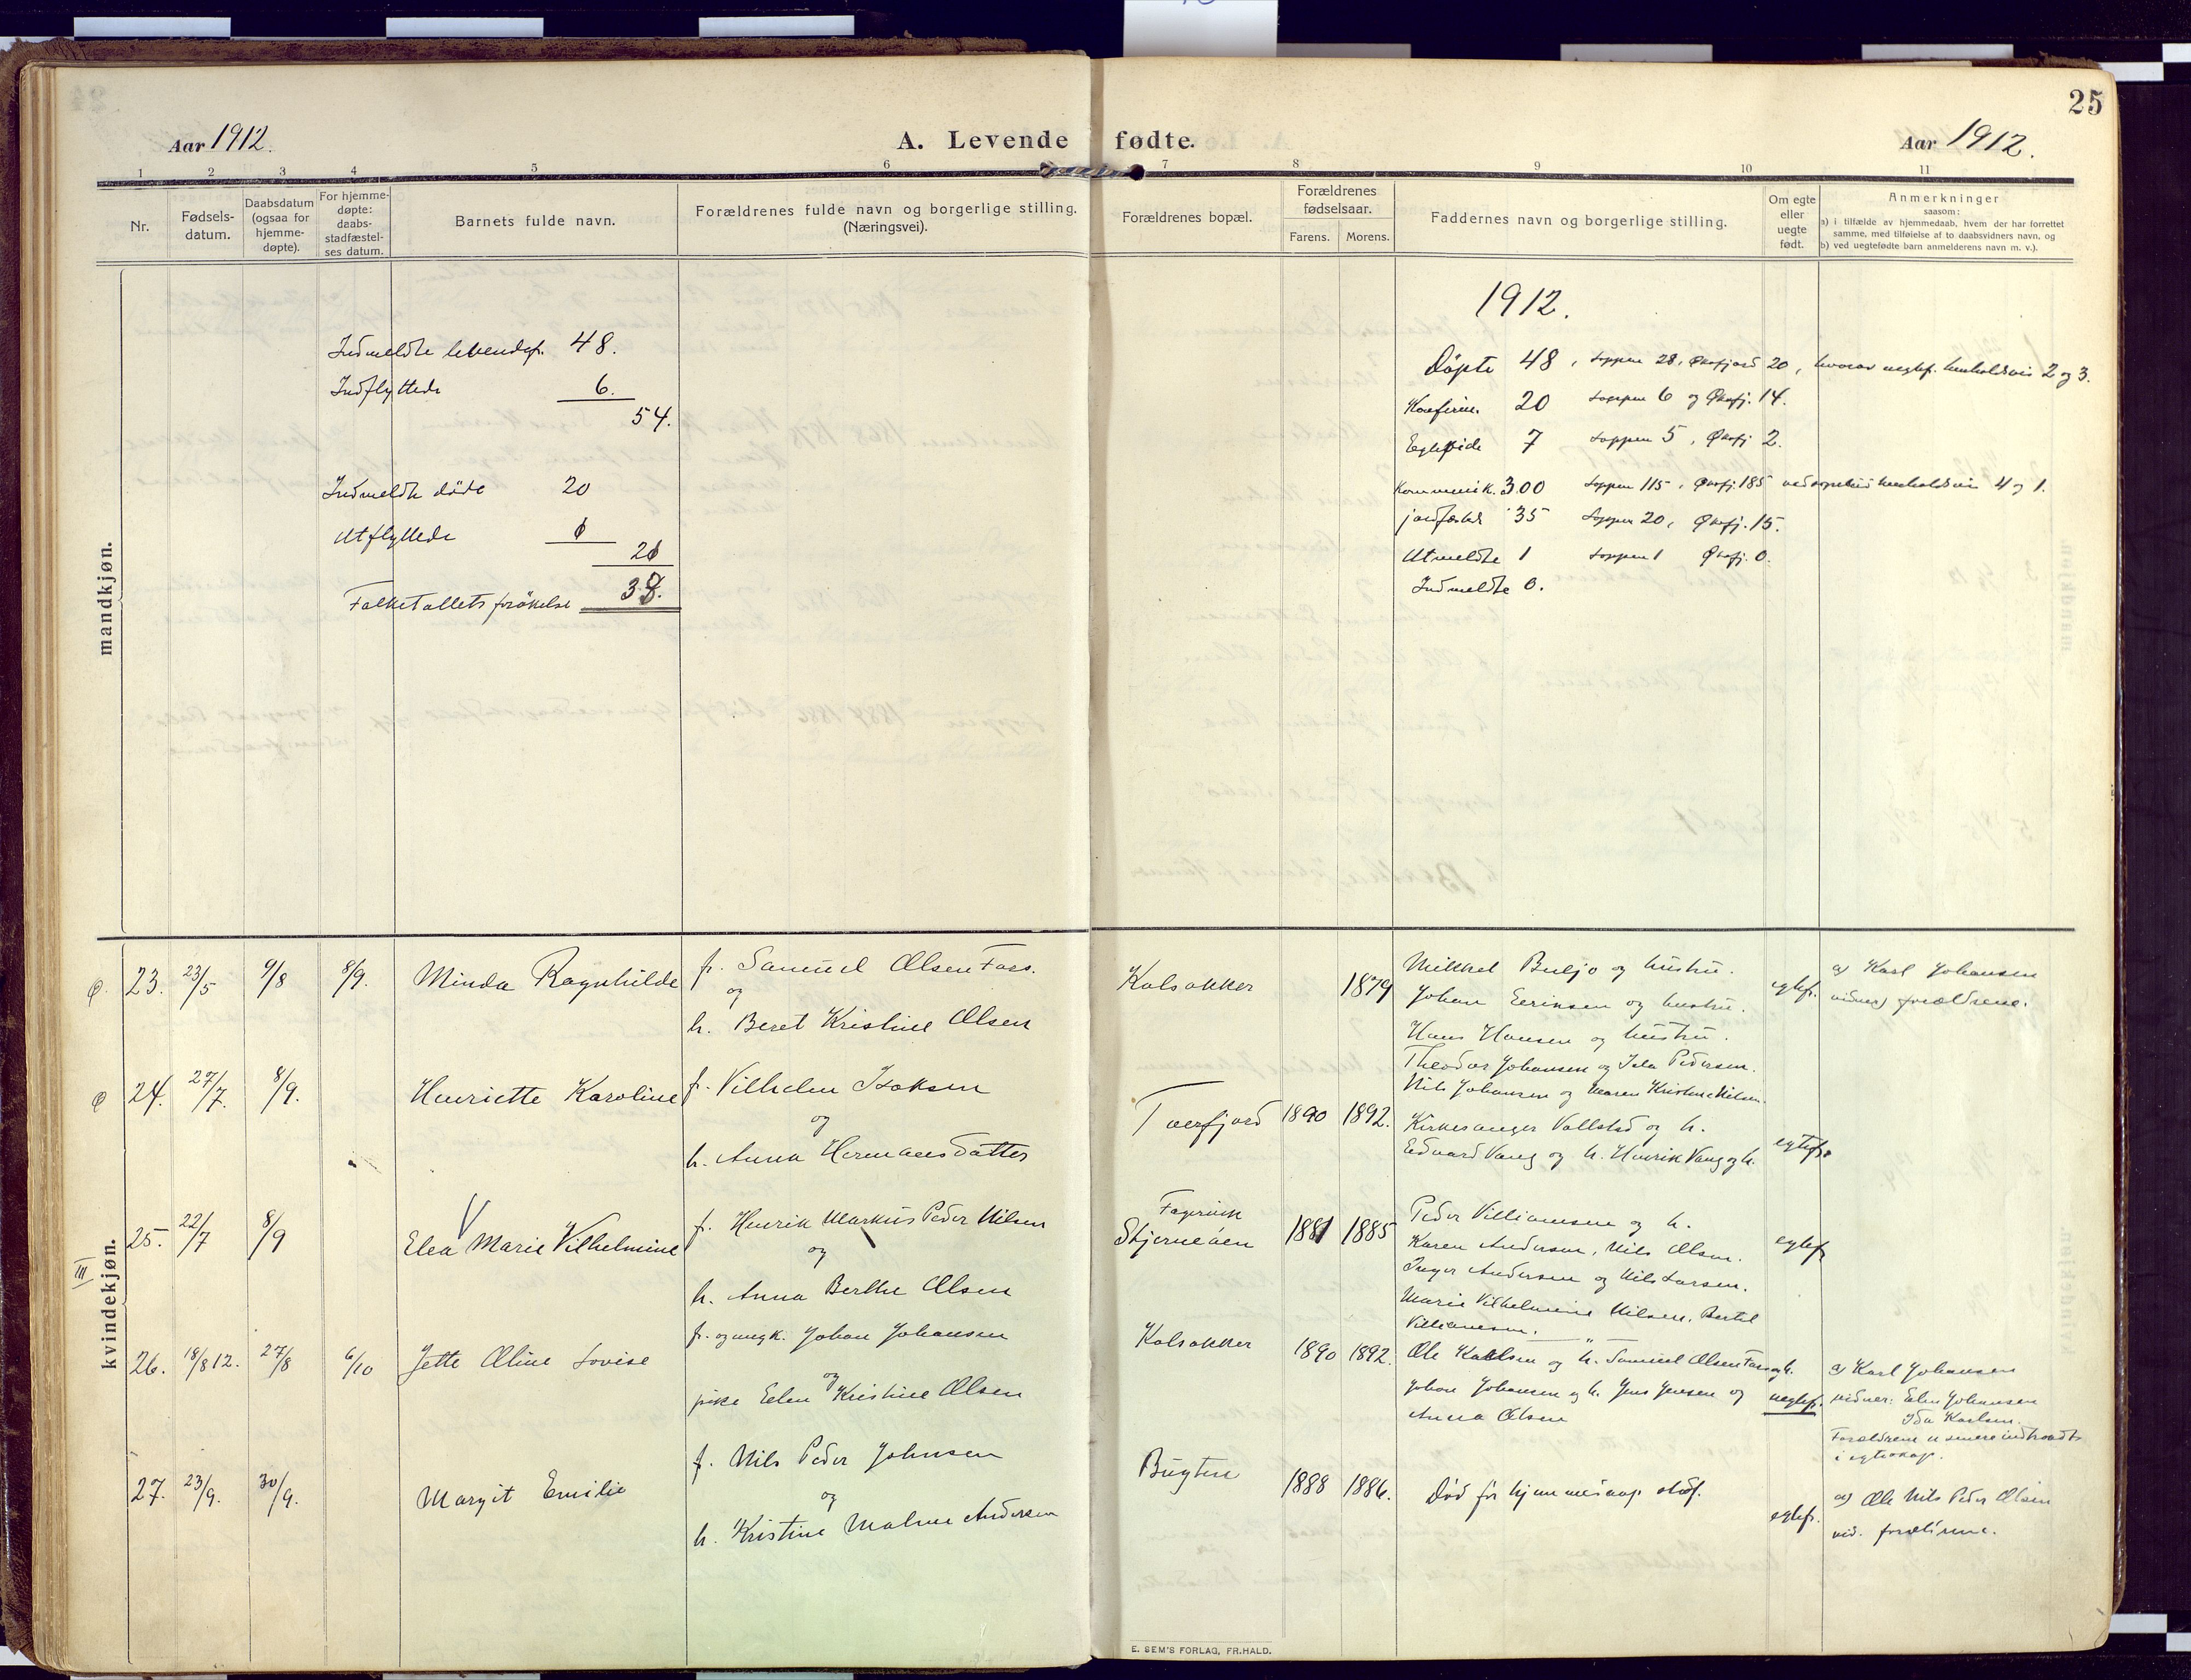 25
Aar 1912.
A. Levende fødte.
Aar 1912.
1 2 3 4 5 6 7 8 9 10 11
Nr.
Fødsels-
datum.
Daabsdatum
(ogsaa for
hjemme-
døpte).
For hjemme-
døpte:
daabs-
stadfæstel-
ses datum.
Barnets fulde navn.
Forældrenes fulde navn og borgerlige stilling.
(Næringsvei).
Forældrenes bopæl.
Forældrenes
fødselsaar.
Farens. Morens.
Faddernes navn og borgerlige stilling.
Om egte
eller
uegte
født.
Anmerkninger
saasom:
a) i tilfælde av hjemmedaab, hvem der har forrettet
samme, med tilføielse af to daabsvidners navn, og
b) ved uegtefødte barn anmelderens navn m. v.).
mandkjøn.
Indmeldte levendef. 48.
Indflyttede 6.
54.
Indmeldte døde 20
Utflyttede
Folketallets forøkelse
1912.
Døpte 48, Loppen 28, Øksfjord 20, hvorav uegtef. henholdsvis 2 og 3.
Konfirm. 20 Loppen 6 og Øksfj. 14.
Egtepide 7 Loppen 5, Øksfj 2.
Kommunik. 300 Loppen 115, Øksfj. 185 henholdsvis 4 og 1.
jordfæstede 35 Loppen 20, Øksfj. 15.
Utmeldte 1 Loppen 1 Øksfj. 0.
Indmeldte 0.
kvindekjøn.
III
Ø. 23. 23/5 9/8 8/9. Minda Ragnhilde
f. Samuel Olsen Fors.
og
h. Beret Kristine Olsen
Kalsakker 1879
Mikkel Buljo og hustru.
Johan Eeriksen og hustru.
Hans Hansen og hustru.
egtef.
a) Karl Johansen
vidner) forældrene.
Ø 24. 27/7. 8/9. Henriette Karoline
f. Vilhelm Isaksen
og
h. Anna Hermansdatter
Tverfjord 1890 1892.
Theodor Johansen og Ida Pedersen.
Nils Johansen og Maren Kristine Nilsen.
Kirkesanger Vallstad og h.
Edvard Vang og h. Henrik Vang og h.
egtef.
25. 22/7 8/9 Elea Marie Vilhelmine
f. Henrik Markus Peder Nilsen
og
h. Anna Berthe Olsen
Fagervik
Stjernøen 1881 1885
Peder Villiamsen og h.
Karen Andersen, Nils Olsen.
Inger Andersen og Nils Larsen.
Marie Vilhelmine Nilsen, Bertel
Villiamsen.
egtef.
26. 18/8 12. 27/8 6/10 Jette Oline Lovise
f. og ungk. Johan Johansen
og
pike Elen Kristine Olsen
Kalsakker 1890 1892.
Ole Karlsen og h. Samuel Olsen Fors og h.
Johan Johansen og h. Jens Jensen og
Anna Olsen
uegtef.
a) Karl Johansen
vidner: Elen Johansen
Ida Karlsen.
Forældrene er senere indtraadt
i egteskap.
27. 23/9. 30/9. Margit Emilie
f. Nils Peder Johnsen
og
h. Kristine Malene Andersen
Bugten 1888 1886.
Død før hjemmedaap stadf.
egtef.
a) Ole Nils Peder Olsen
vid. forældrene.
E. SEM'S FORLAG, FR.HALD.